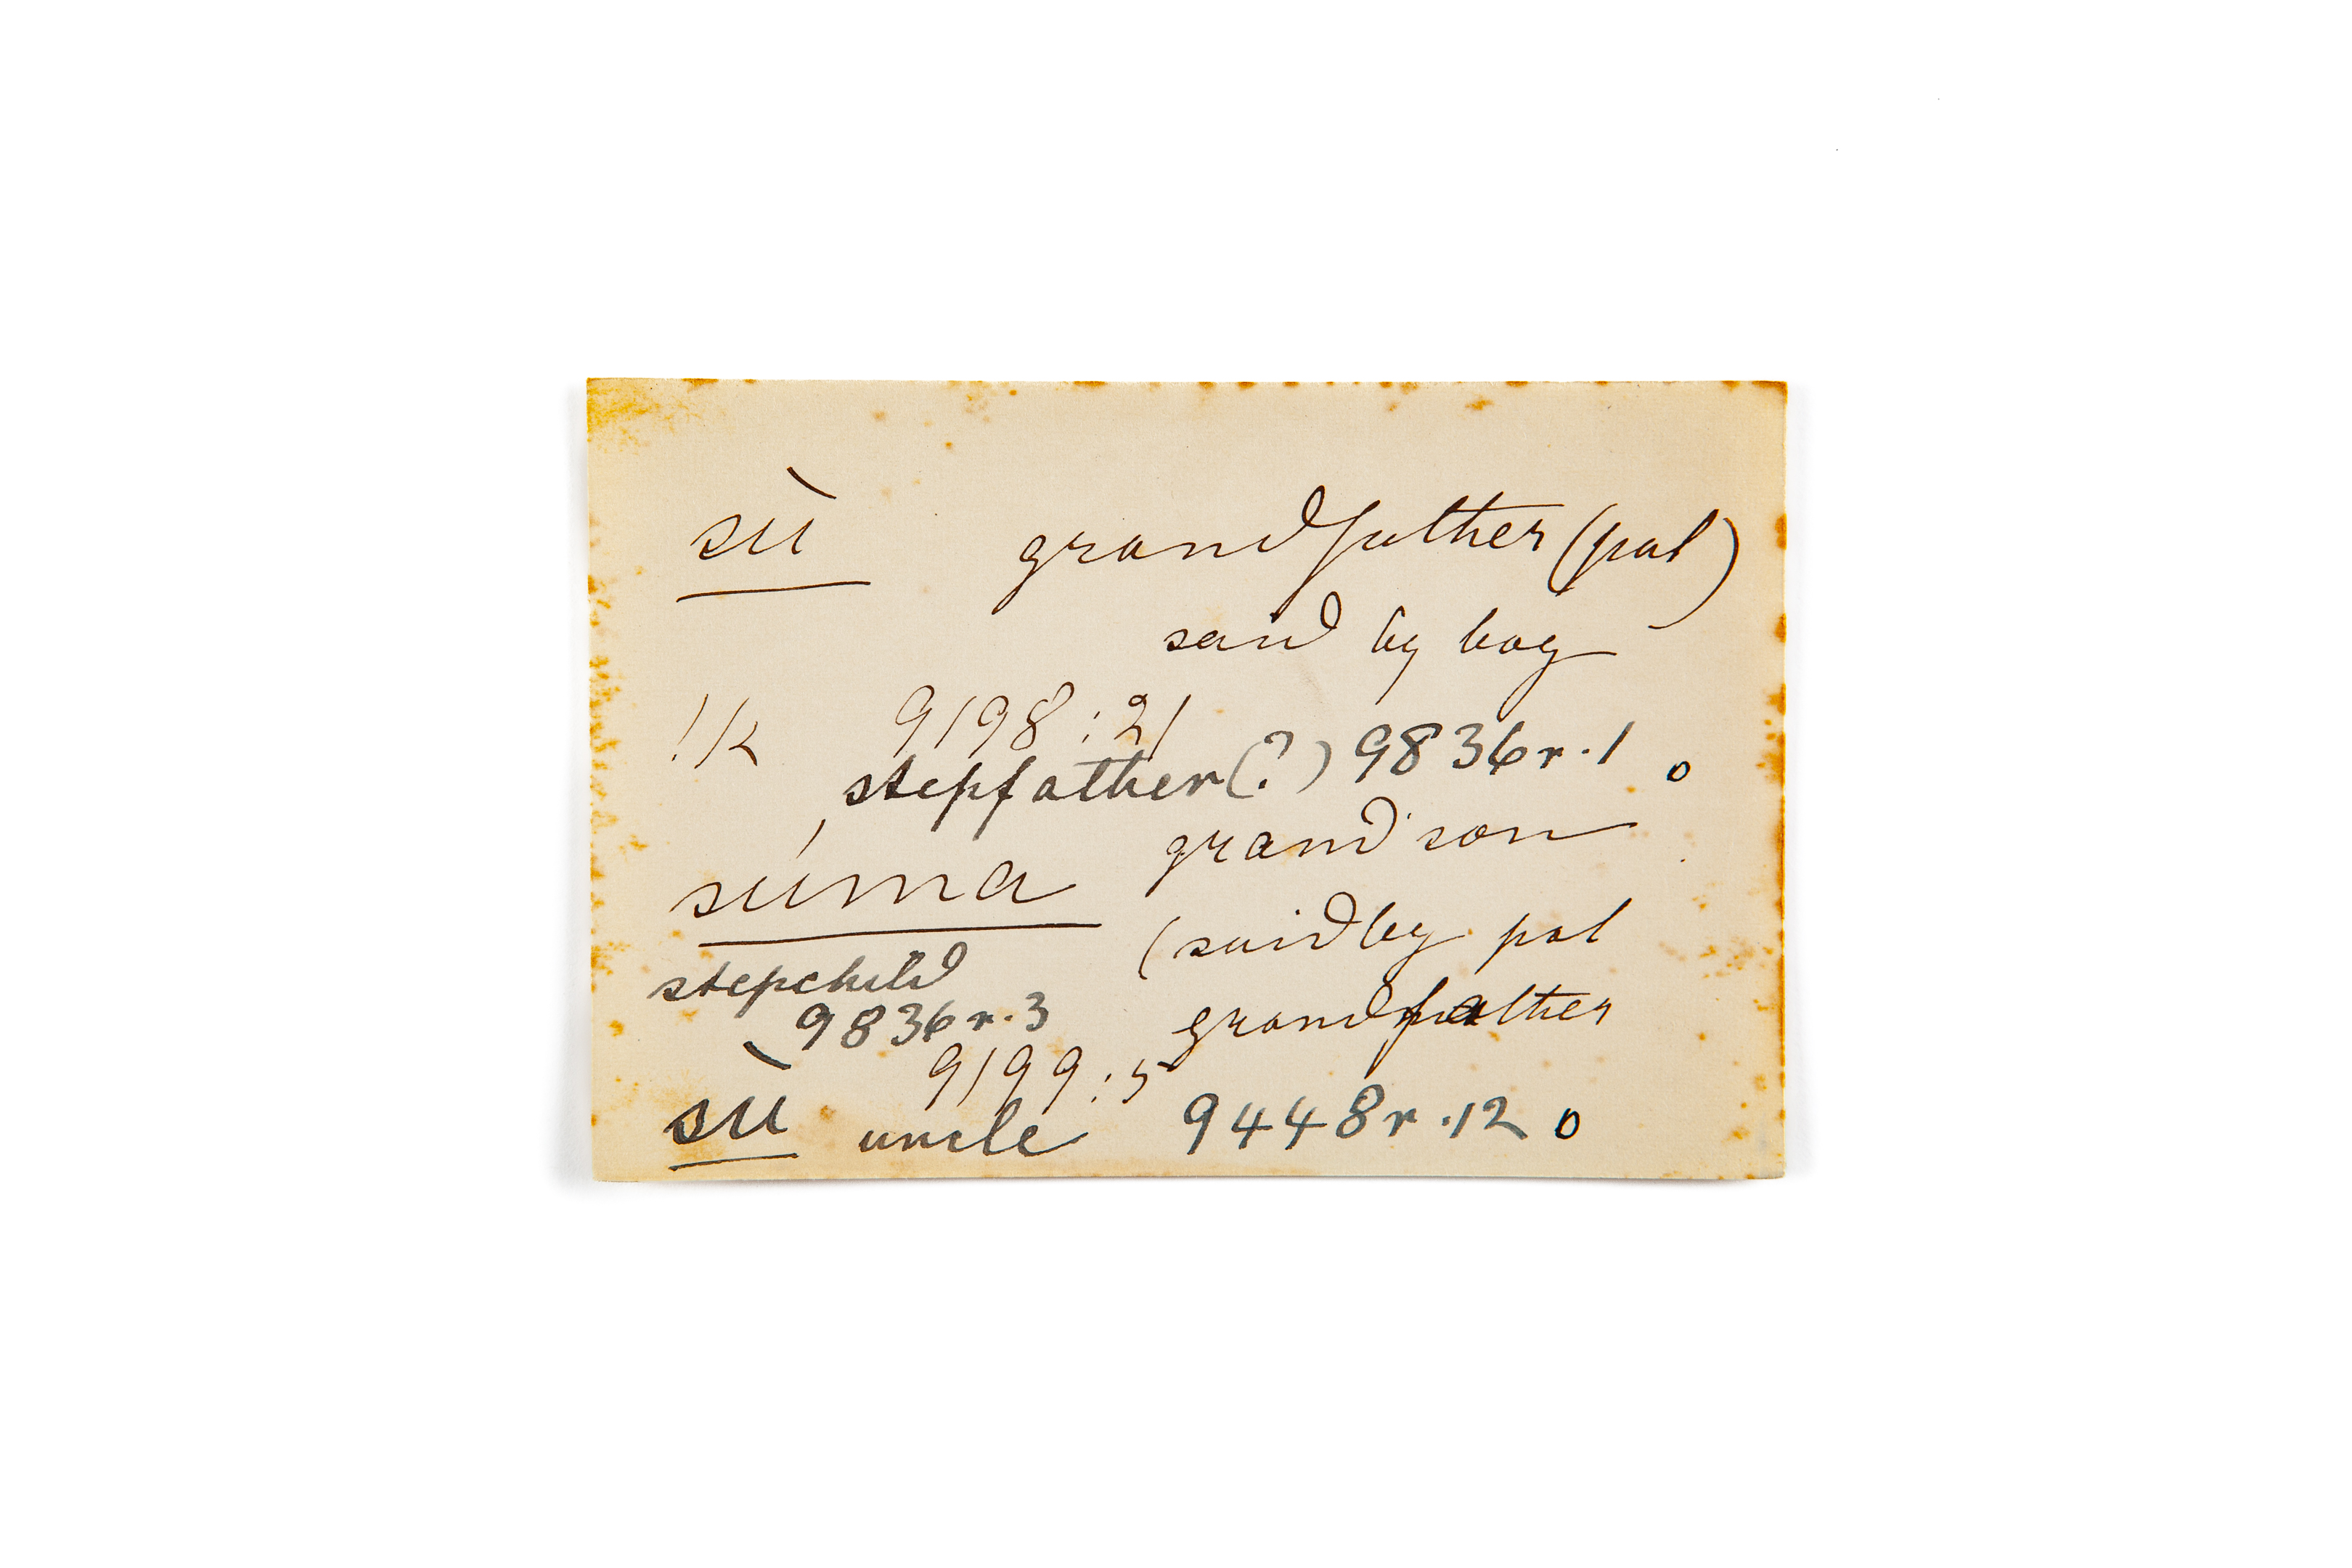 sù grandfather (pat)
said by boy
!k 9198:21
stepfather (?) 9836r.1 o
súma grandson
(said by pat
stepchild
grandfather
9836r.3
9199:5
sù uncle 9448r.12 o